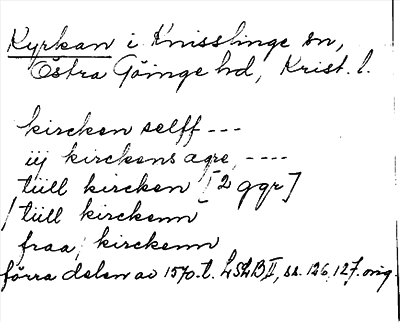 Kyrkan i Knisslinge sn,
Östra Göinge hd, Krist. l.
kircken selff ---
iij kirckens agre, ----
tiill kircken [2 ggr]
/ tiill kirckenn
fraa, kirckenn
förra delen av 1570-t. LSLB II, ss. 126, 127. orig.